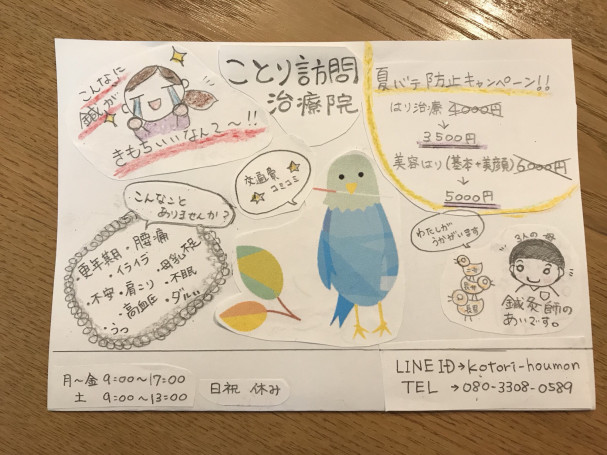 こんなに
鍼が
きもちいいなんて〜!!
ことり訪問
治療院
夏バテ防止キャンペーン!!
はり治療 4000円
↓
3500円
美容はり(基本+美顔)6000円
↓
5000円
交通費
コミコミ
こんなこと
ありませんか?
・更年期・腰痛
・イライラ・母乳不足
・不安・肩こり・不眠
・高血圧・ダルい
・うつ
わたしが
うかがいます
3人の母
鍼灸師の
あいです。
月〜金 9:00〜17:00
土 9:00〜13:00
日祝 休み
LINE ID→kotori-houmon
TEL →080-3308-0589